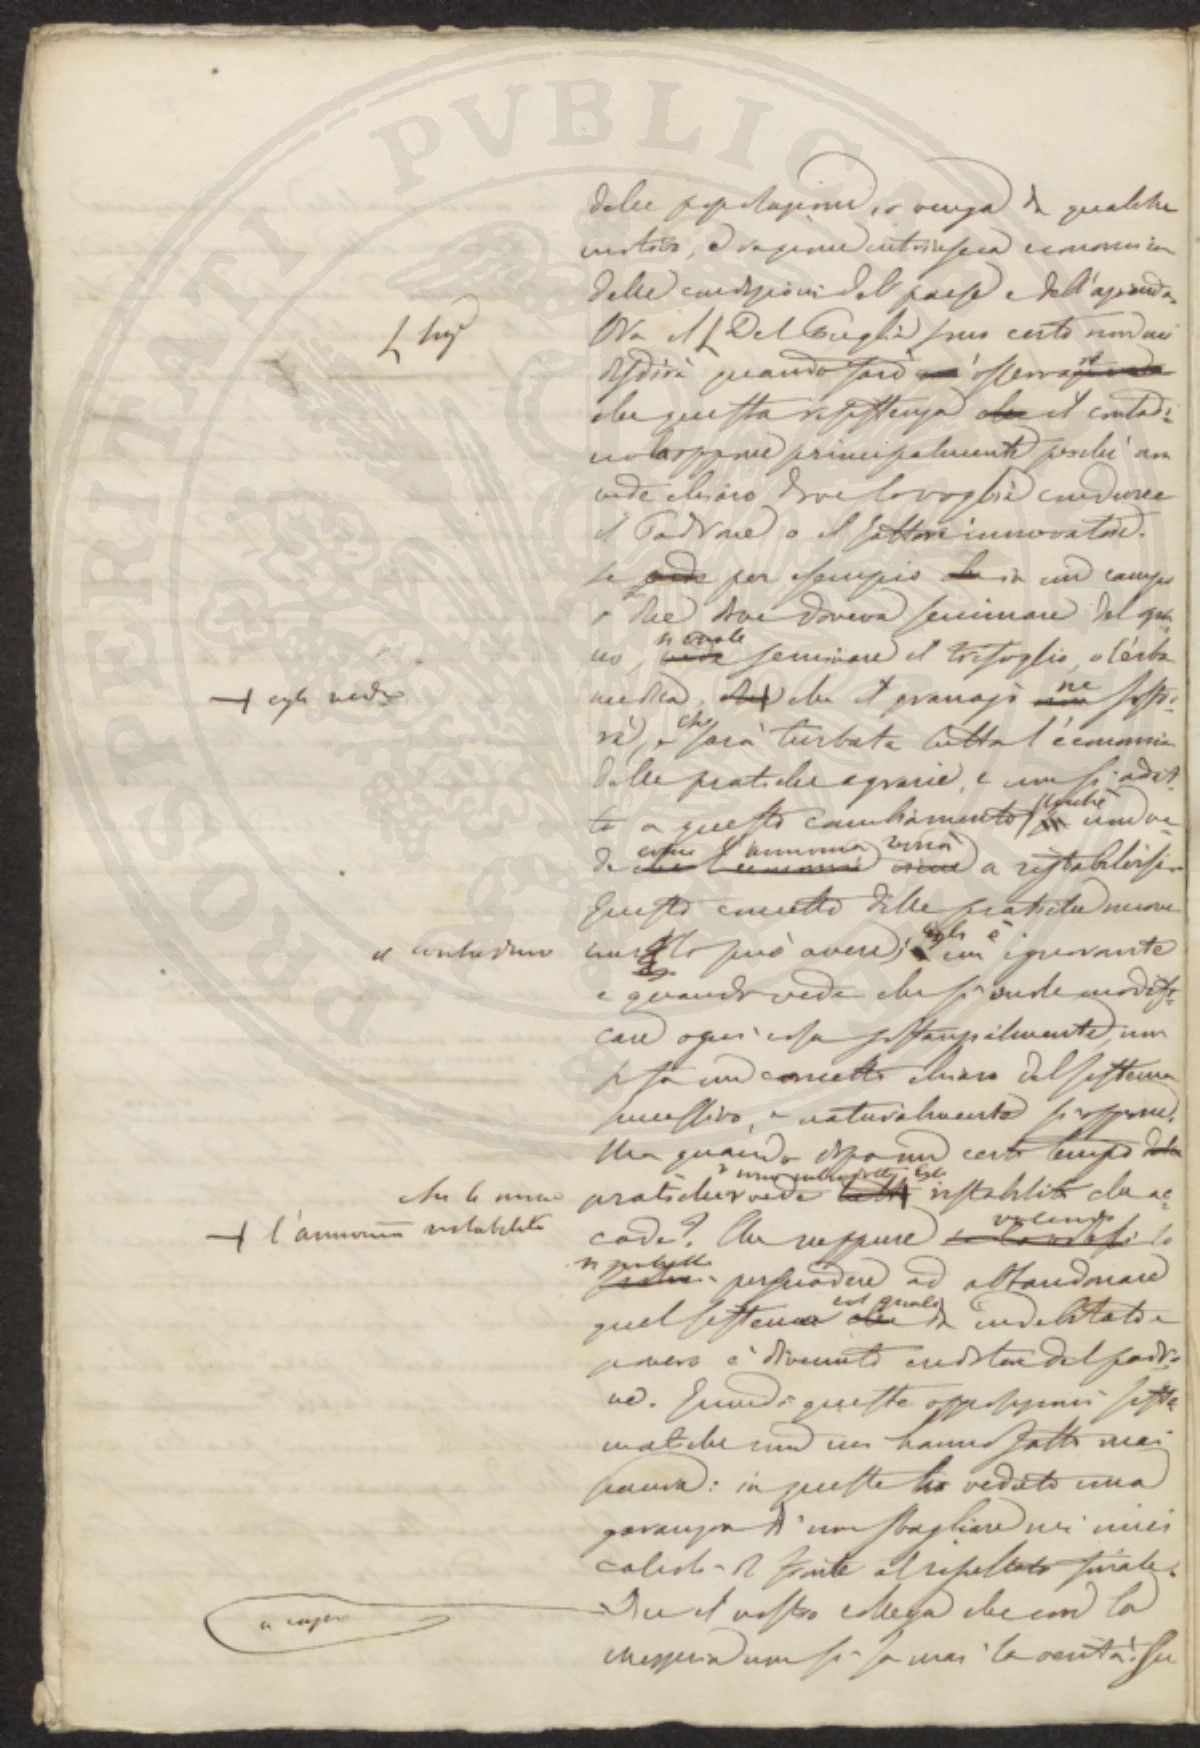 PROSPERITATI PVBLICAE
delle popolazioni, o venga da qualche
motivo, o ragione intrinseca economica
delle condizioni del paese e dell'azienda
Ora il Del Puglia sono certo non mi
disdirà quando farò osservare
che questa resistenza che il contadi-
no oppone principalmente perché non
vede chiaro dove lo voglia condurre
il Padrone o il fattore innovatore.
Se vede per esempio che in un campo
o due dove doveva seminare del gra-
no, si vuole seminare il trifoglio, o l'erba
egli vede
medica, che il granajo ne soffri-
rà, e che sarà turbata tutta l'economia
delle pratiche agrarie, e non si adat-
ta a questo cambiamento finché non ve-
de come l'armonia verrà a ristabilirsi.
Questo concetto delle pratiche nuove
il contadino
non lo può avere; egli è un ignorante
e quando vede che si vuole modifi-
care ogni cosa sostanzialmente, non
si fa un concetto chiaro del sistema
successivo, e naturalmente si oppone.
Ma quando dopo un certo tempo
che le nuove
pratiche sono introdotte, egli vede ristabilita che ac-
l'armonia ristabilita
cade? Che neppure volendo lo
si potrebbe persuadere ad abbandonare
quel sistema col quale da indebitato e
povero è divenuto creditore del padro-
ne. Quindi queste opposizioni siste-
matiche non mi hanno fatto mai
paura: in queste ho veduto una
garanzia di non sbagliare nei miei
calcoli di fronte al resultato finale.
a capo
Dice il nostro collega che con la
mezzeria non si sa mai la verità. Su